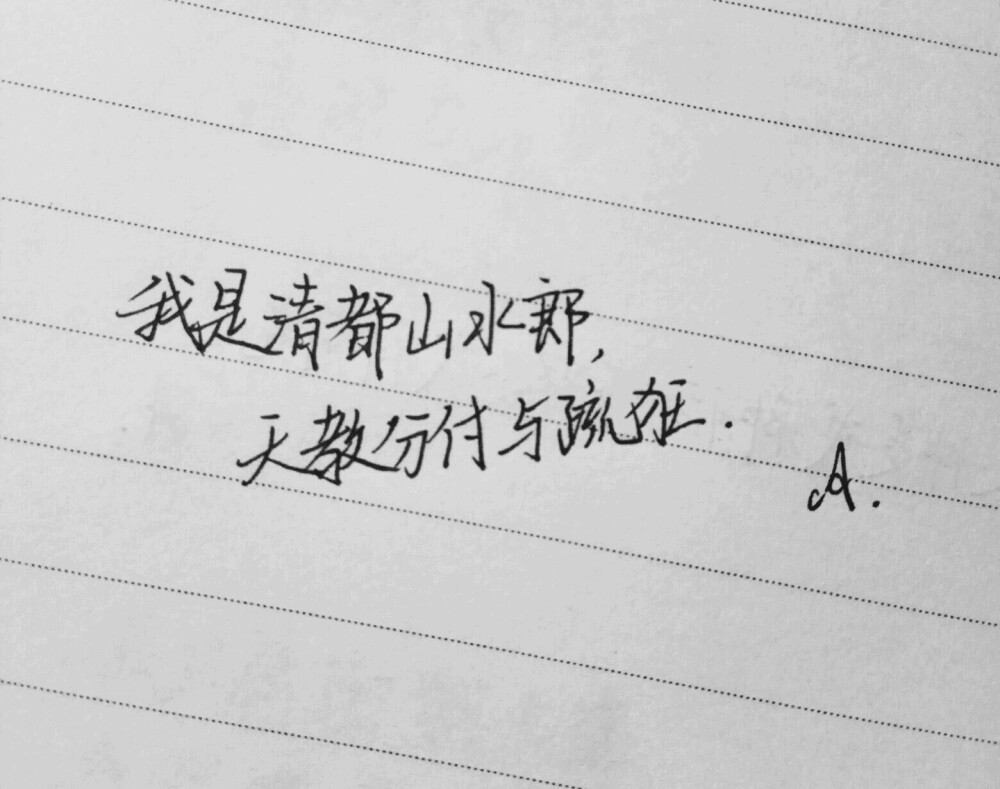 我是清都山水郎,
天教分付与疏狂.
A.